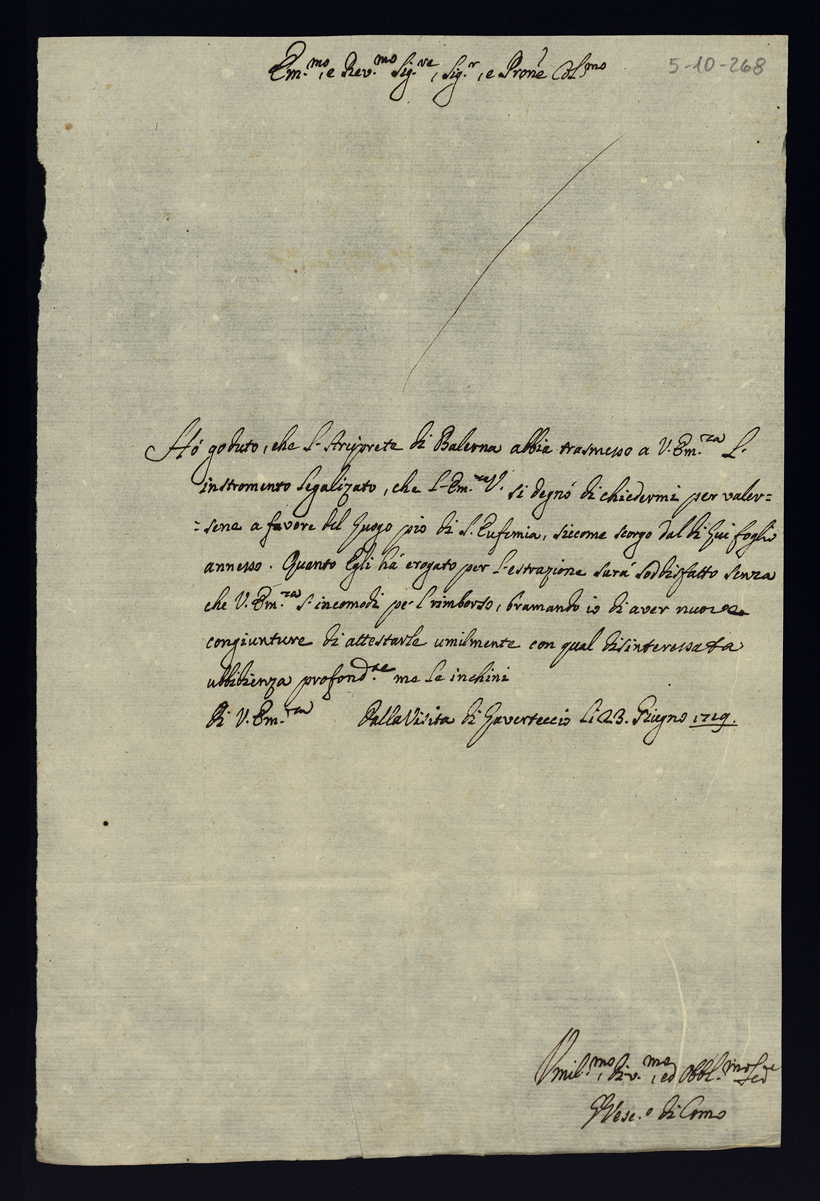 Em.mo, e Rev.mo Sig.re, Sig.r, e Prone Col.mo
5-10-268
Hó goduto, che l'Arciprete di Balerna abbia trasmesso a V. Em.za l'
instromento legalizato, che l'Em.za V. si degnó di chiedermi per valer=
=sene a favore del Luogo pio di S. Eufemia, siccome scorgo dal di Lui foglio
annesso. Quanto Egli há erogato per l'estrazione sará sodbisfatto senza
che V. Em.za s'incomodi pe'l rimborso, bramando io di aver nuove
congiunture di attestarle umilmente con qual disinteressata
ubbidienza profond.te me le inchini
Di V. Em.za Dalla Visita di li 23. Giugno 1719.
Umil.mo, Div.mo, ed Obbl.mo Se.re
Il Vesc.o di Como